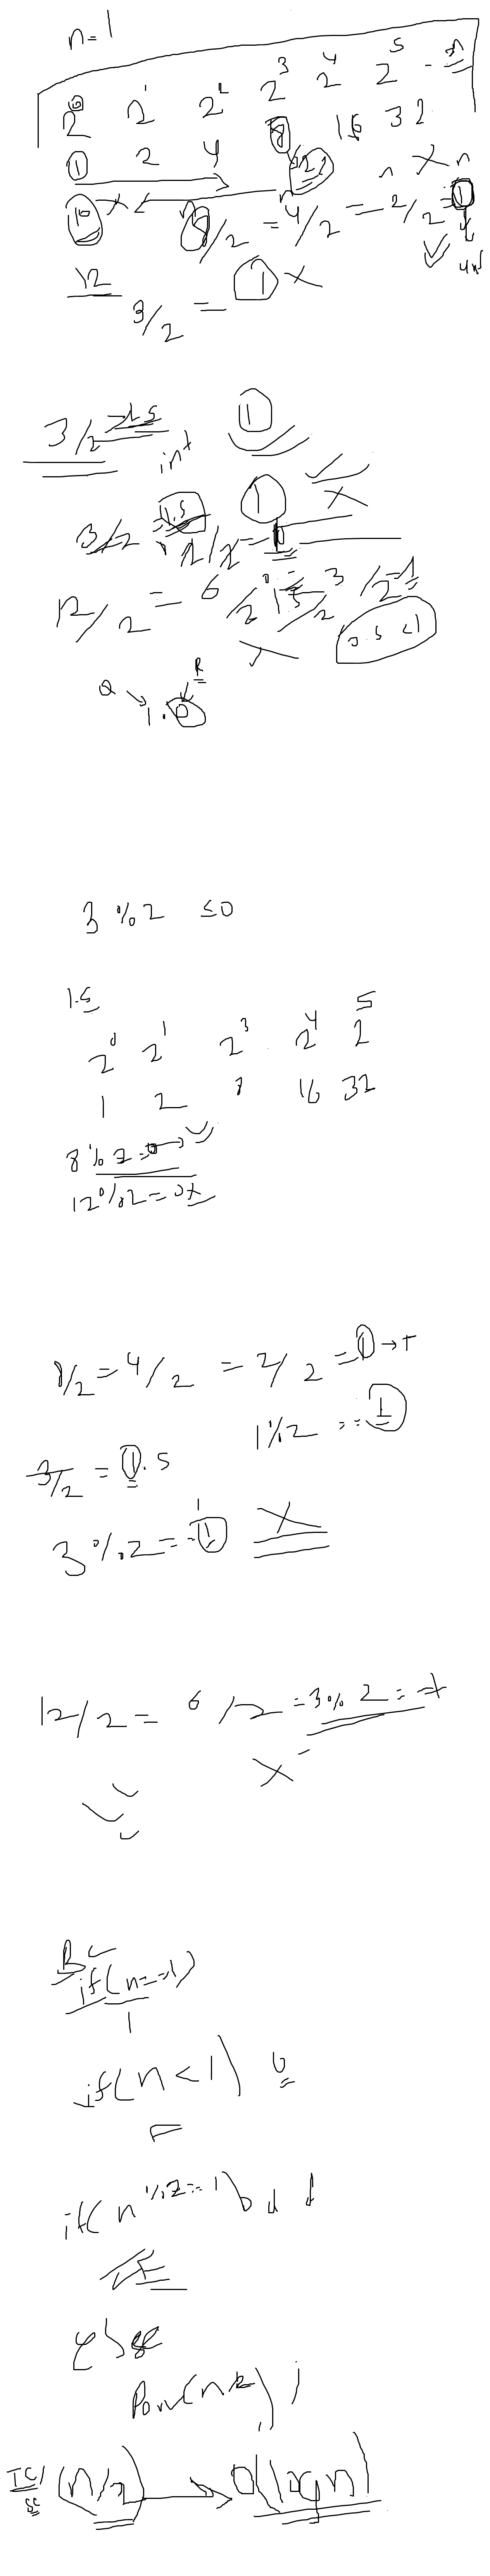 n=1
2^0 2^1 2^2 2^3 2^4 2^5 - n
1 2 4 8 16 32
n × n
10 × 8/2 = 4/2 = 2/2 = 1
12 3/2 = 1 ×
3/2 1.5 int 1
3/2 = 1.5 1 ×
12/2 = 6/2 3/2 = 1
0.5 < 1
Q R
1.0
3 % 2 ≤0
1.5
2^0 2^1 2^3 2^4 2^5
1 2 8 16 32
8 % 2 = 0 →
12 % 2 = 0 ×
8/2 = 4/2 = 2/2 = 1 → T
1 % 2 == 1
3/2 = 1.5
3 % 2 == 1 ×
12/2 = 6/2 = 3 % 2 =
×
BC
if(n==1)
1
if(n<1)
if(n % 2 == 1) odd
else
Pow(n/2);
TC/SC (n/2) → O(log n)